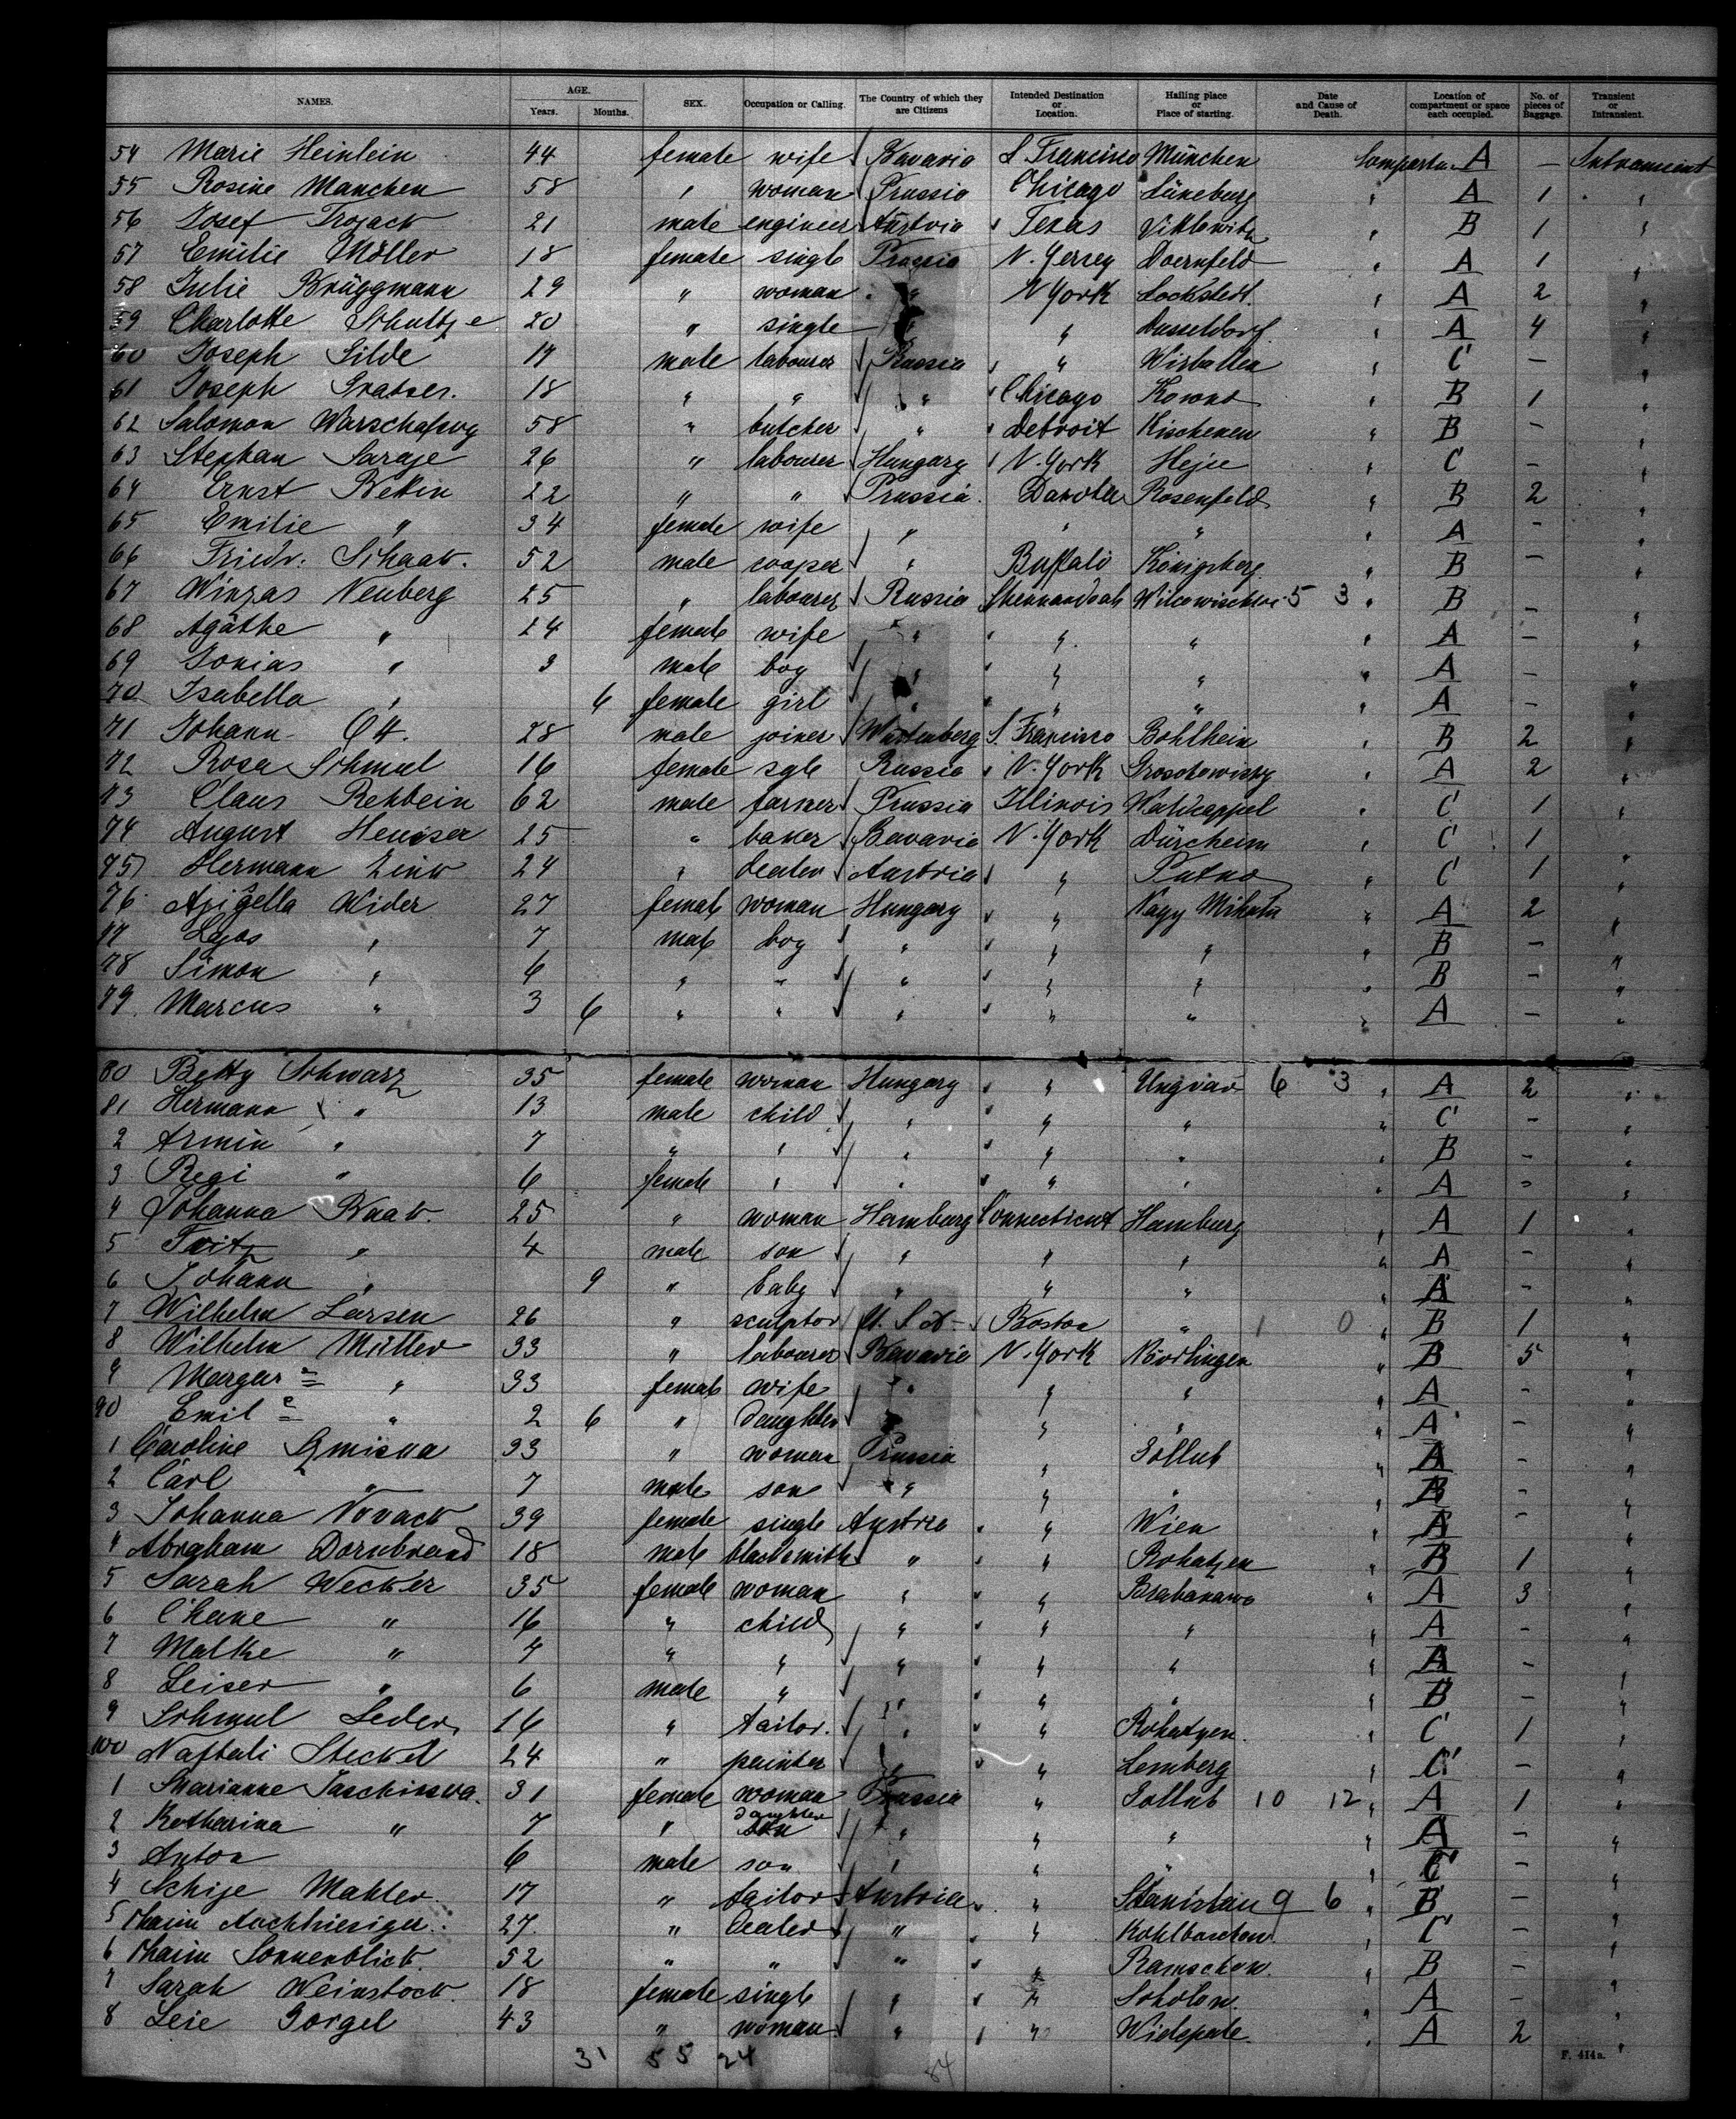 NAMES. AGE. Years. Months. SEX. Occupation or Calling. The Country of which they are Citizens Intended Destination or Location. Hailing place or Place of starting. Date and Cause of Death. Location of compartment or space each occupied. No. of pieces of Baggage. Transient or Intransient.
54 Marie Heinlein 44 female wife Bavaria S Francisco München A —
55 Rosine Manchen 58 " woman Prussia Chicago Lüneburg " A 1 "
56 Josef Trojack 21 male engineer Austria Texas " B 1 "
57 Emilie Möller 18 female single Prussia N. Jersey Doernfeld " A 1 "
58 Julie Brüggmann 29 " woman " N York Lockstedt. " A 2 "
59 Charlotte Schultze 20 " single " " Dusseldorf " A 4 "
60 Joseph Silde 19 male labourer Russia " Wirballen " C — "
61 Joseph Gratser. 18 " " " Chicago Kowno " B 1 "
62 Salomon 58 " butcher " Detroit " B - "
63 Stephan Saraje 26 " labourer Hungary N. York Hejce " C - "
64 Ernst 22 " " Prussia. Dakota Rosenfeld " B 2 "
65 Emilie " 34 female wife " " " " A - "
66 Friedr. Schaak. 52 male cooper " Buffalo Königsberg " B - "
67 Winzas Neuberg 25 " labourer Russia 5 3 " B - "
68 Agathe " 24 female wife " " " " A - "
69 Jonias " 3 male boy " " " " A - "
70 Isabella " 6 female girl " " " " A - "
71 Johann Ott. 28 male joiner S. Francisco Bohlheim " B 2 "
72 Rosa Schmul 16 female sgle Russia N. York " A 2 "
73 Claus Rehbein 62 male farmer Prussia Illinois Waldkappel " C 1 "
74 August Heuser 25 " baker Bavaria N. York Dürcheim " C 1 "
75 Hermann Zink 24 " dealer Austria " Putna " C 1 "
76 Wider 27 female woman Hungary " Nagy " A 2 "
77 " 7 male boy " " " " B - "
78 Simon " 6 " " " " " B - "
79 Marcus " 3 6 " " " " " " A - "
80 Betty Schwarz 35 female woman Hungary " Ungvar 6 3 " A 2 "
81 Hermann " 13 male child " " " " C - "
2 Armin " 7 " " " " " " B - "
3 Regi " 6 female " " " " " A - "
4 Johanna Knak. 25 " woman Hamburg Connecticut Hamburg " A 1 "
5 Fritz " 4 male son " " " " A - "
6 Johann " 9 " baby " " " " A - "
7 Wilhelm Larsen 26 " sculptor U. S. A - Boston " 1 0 " B 1 "
8 Wilhelm Müller 33 " labourer Bavaria N. York Nördlingen " B 5 "
9 Margar e " 33 female wife " " " " A - "
90 Emil e " 2 6 " daughter " " " " A - "
1 Caroline 33 " woman Prussia " Gollub " A - "
2 Carl " 7 male son " " " " B - "
3 Johanna Novack 39 female single Austria " Wien " A - "
4 Abraham Dornbrand 18 male blacksmith " " Rohatzen " B 1 "
5 Sarah Wecker 35 female woman " " " A 3 "
6 Chane " 16 " child " " " " A - "
7 Malke " 7 " " " " " " A - "
8 Leiser " 6 male " " " " " B - "
9 Schmul Leder 16 " tailor. " " Rohatzen. " C 1 "
100 Naftali Steckel 24 " painter " " Lemberg " C - "
1 Marianne 31 female woman Prussia " Gollub 10 12 " A 1 "
2 Katharina " 7 " daughter " " " " A - "
3 Anton 6 male son " " " " C - "
4 Mahler. 17 " tailor Austria " Stanislau 9 6 " B -
5 Chaim 27. " dealer " " " C - "
6 Chaim Sonnenblick. 52 " " " " Ramschow. " B - "
7 Sarah Weinstock. 18 female single " " Sokolow. " A - "
8 Leie Gorgel 43 " woman " " " A 2 "
31 55 24 84
F. 414a.